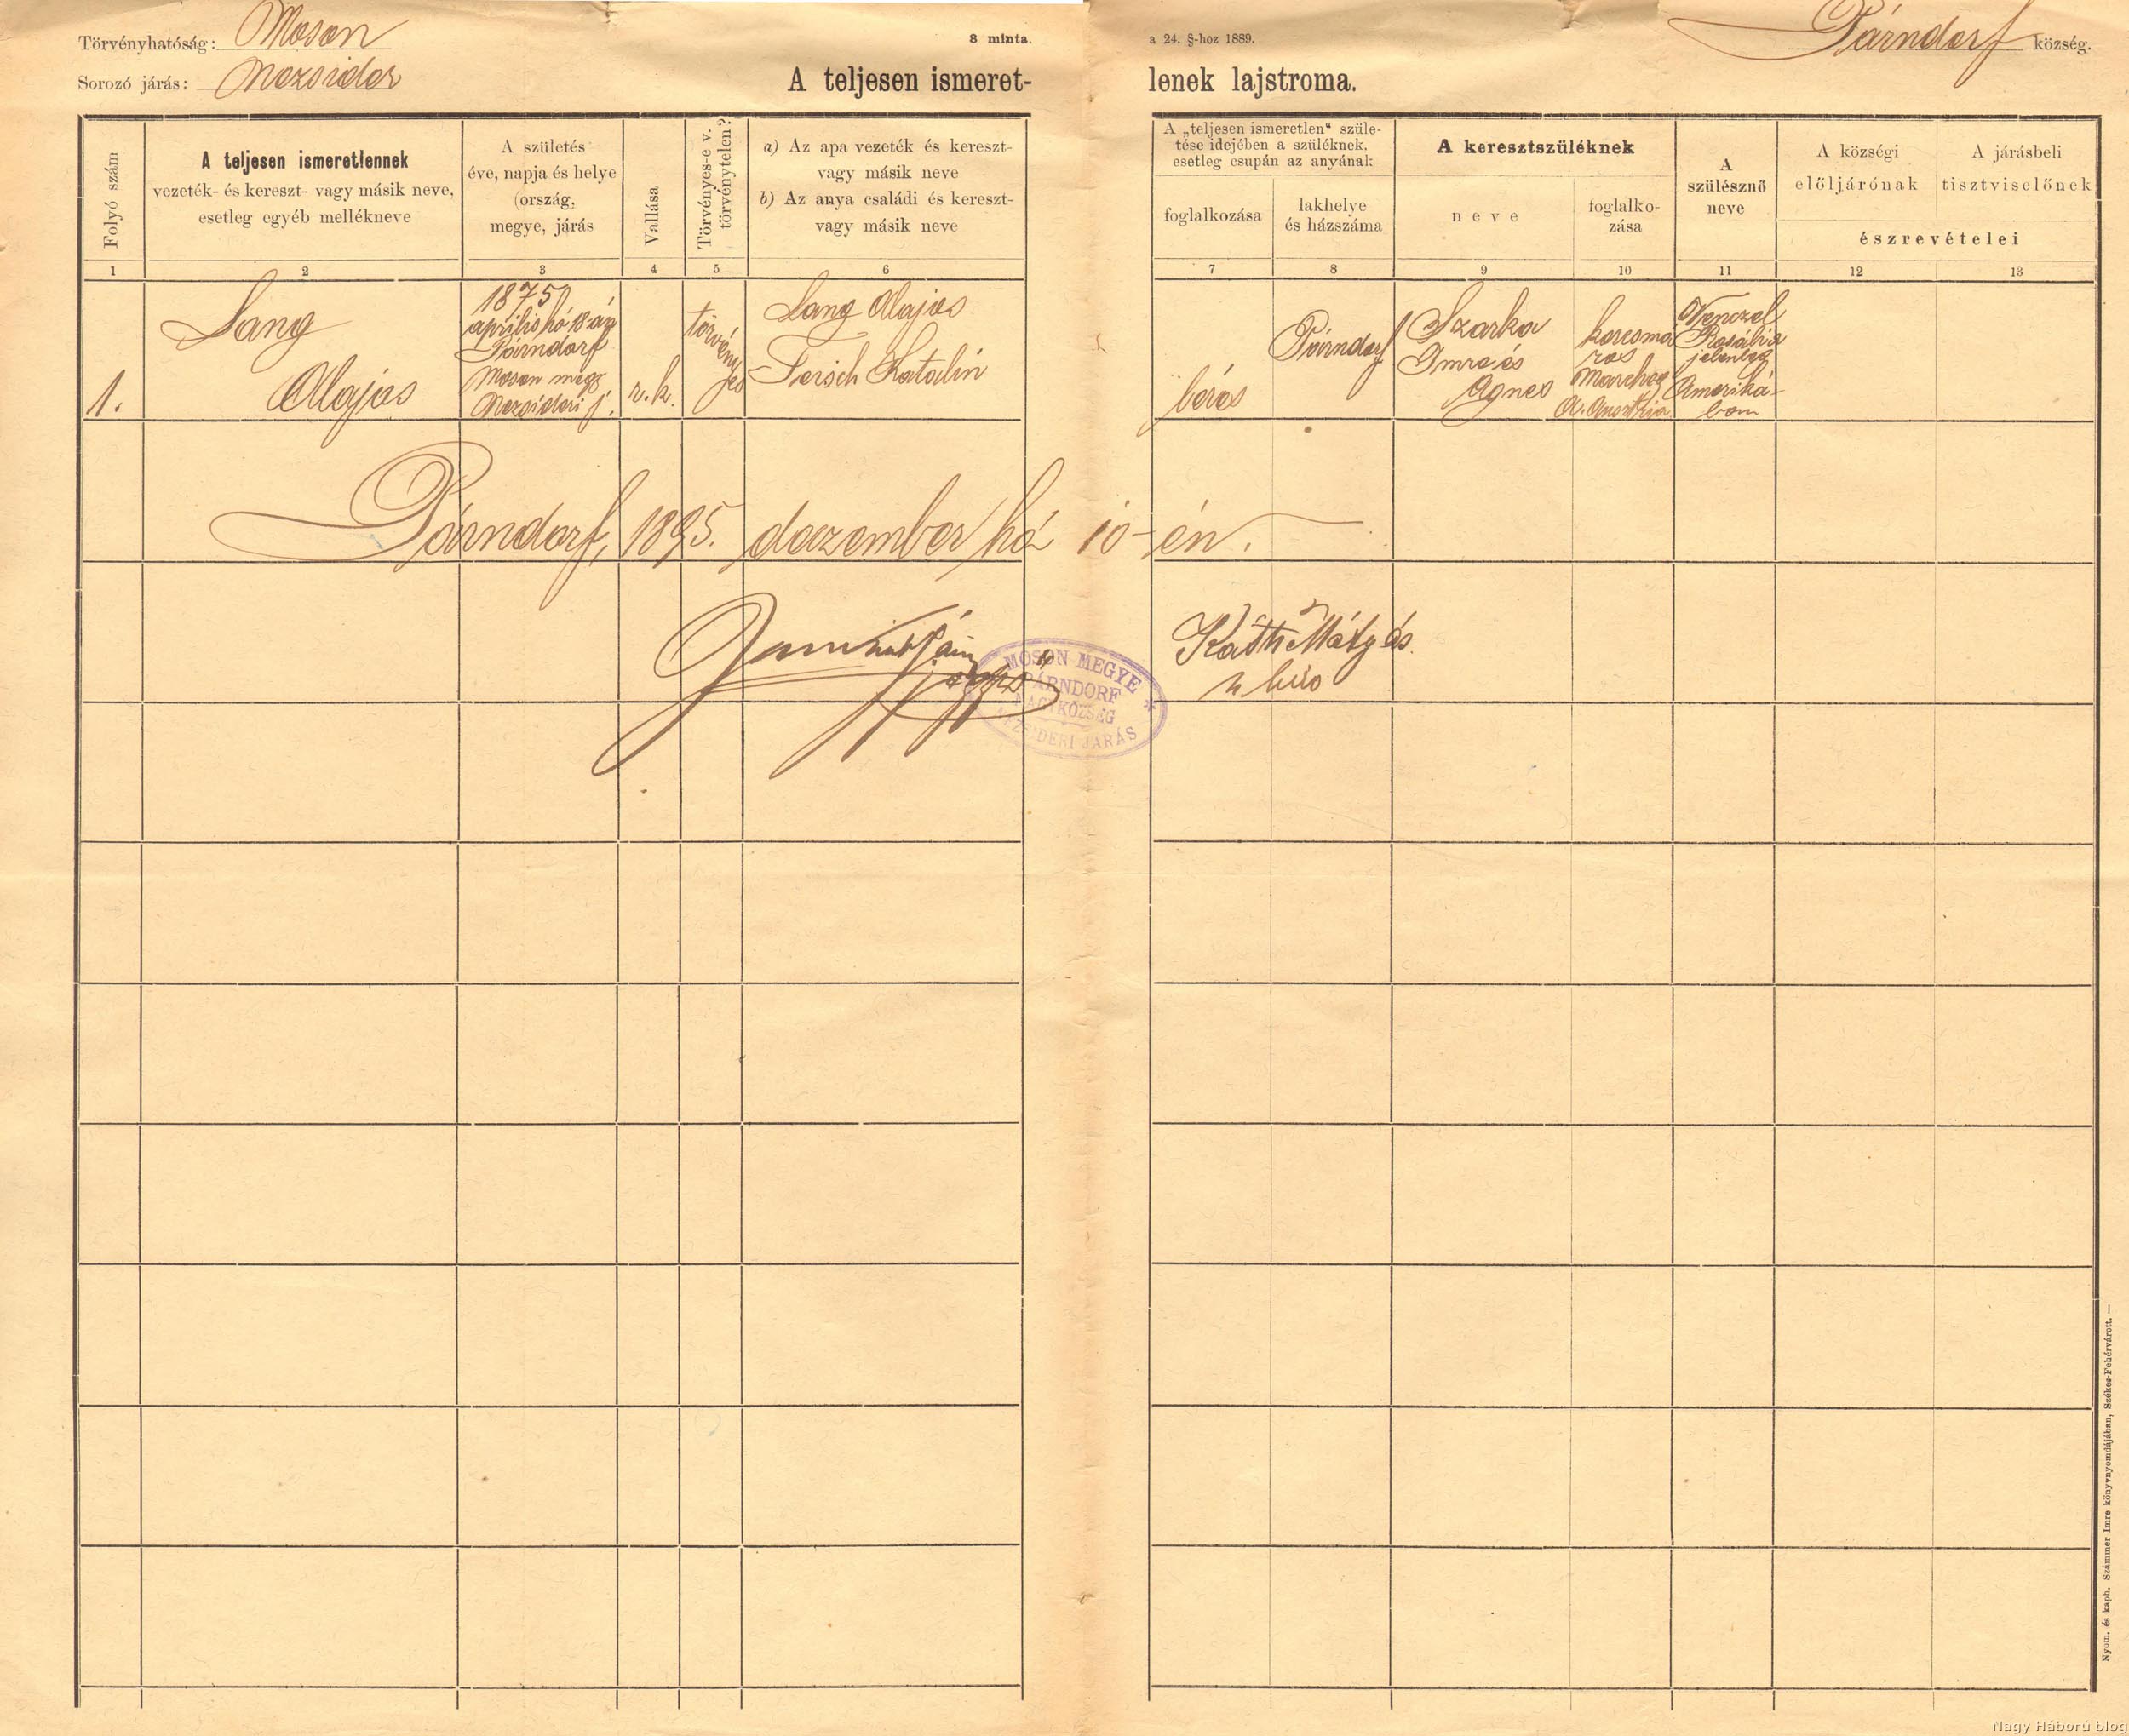 Törvényhatóság: Moson
8 minta.
a 24. §-hoz 1889.
Párndorf község.
Sorozó járás: Nezsider
A teljesen ismeret-
lenek lajstroma.
Folyó szám
A teljesen ismeretlennek
vezeték- és kereszt- vagy másik neve,
esetleg egyéb mellékneve
A születés
éve, napja és helye
(ország,
megye, járás
Vallása
Törvényes-e v.
törvénytelen?
a) Az apa vezeték és kereszt-
vagy másik neve
b) Az anya családi és kereszt-
vagy másik neve
A „teljesen ismeretlen“ szüle-
tése idejében a szüléknek,
esetleg csupán az anyának
foglalkozása
lakhelye
és házszáma
A keresztszüléknek
neve
foglalko-
zása
A
szülésznő
neve
A községi
előljárónak
A járásbeli
tisztviselőnek
észrevételei
1 2 3 4 5 6 7 8 9 10 11 12 13
1.
Lang
Alajos
1875
április hó 18-án
Párndorf
Moson megy
Nezsideri j.
r. k.
törvény
jes
Lang Alajos
Katalin
béres
Párndorf
Szarka
Imre és
Agnes
korcsmá
ros
Marcheg
A. Austria
Venczel
Rosália
jelenleg
Ameriká-
ban
Párndorf, 1895. deczember hó 10-én.
Káth Mátyás
bíró
MOSON MEGYE
PÁRNDORF
NAGYKÖZSÉG
NEZSIDERI JÁRÁS
Nyom. és kaph. Számmer Imre könyvnyomdájában, Székes-Fehérvárott. —
Nagy Háború blog